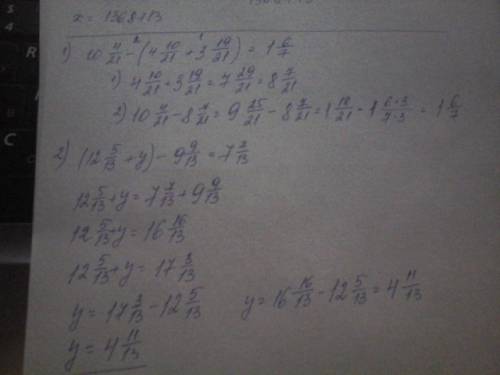 1) 10 4/21 - (4 10/21 + 3 19/21) = 1 6/7
1) 4 10/21 + 3 19/21 = 7 29/21 = 8 7/21
2) 10 4/21 - 8 7/21 = 9 25/21 - 8 7/21 = 1 18/21 = 1 6·3/7·3 = 1 6/7
2) (12 5/13 + y) - 9 9/13 = 7 7/13
12 5/13 + y = 7 7/13 + 9 9/13
12 5/13 + y = 16 16/13
12 5/13 + y = 17 3/13
y = 17 3/13 - 12 5/13 y = 16 16/13 - 12 5/13 = 4 11/13
y = 4 11/13